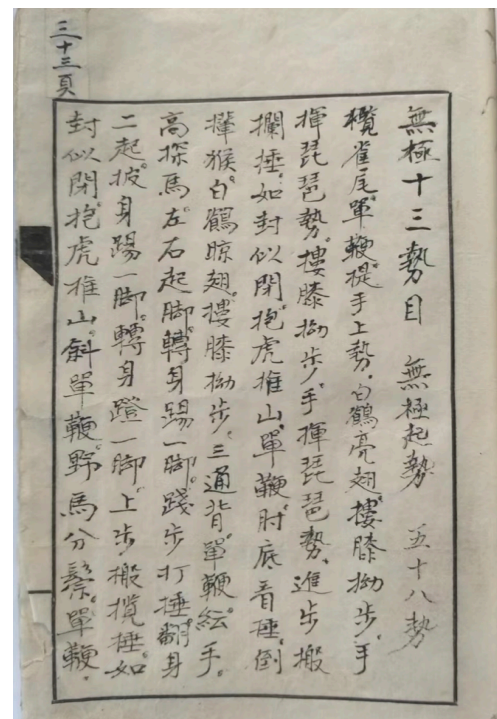 三十三頁
無極十三勢目　無極起勢　五十八勢
欖雀尾。單鞭。提手上勢。白鶴亮翅。摟膝拗步。手
揮琵琶勢。摟膝拗步。手揮琵琶勢。進步搬
攔捶。如封似閉。抱虎推山。單鞭。肘底看捶。倒
攆猴。白鶴晾翅。摟膝拗步。三通背。單鞭。紜手。
高探馬。左右起脚。轉身踢一脚。踐步打捶。翻身
二起。披身踢一脚。轉身蹬一脚。上步搬攬捶。如
封似閉。抱虎推山。斜單鞭。野馬分鬃。單鞭。